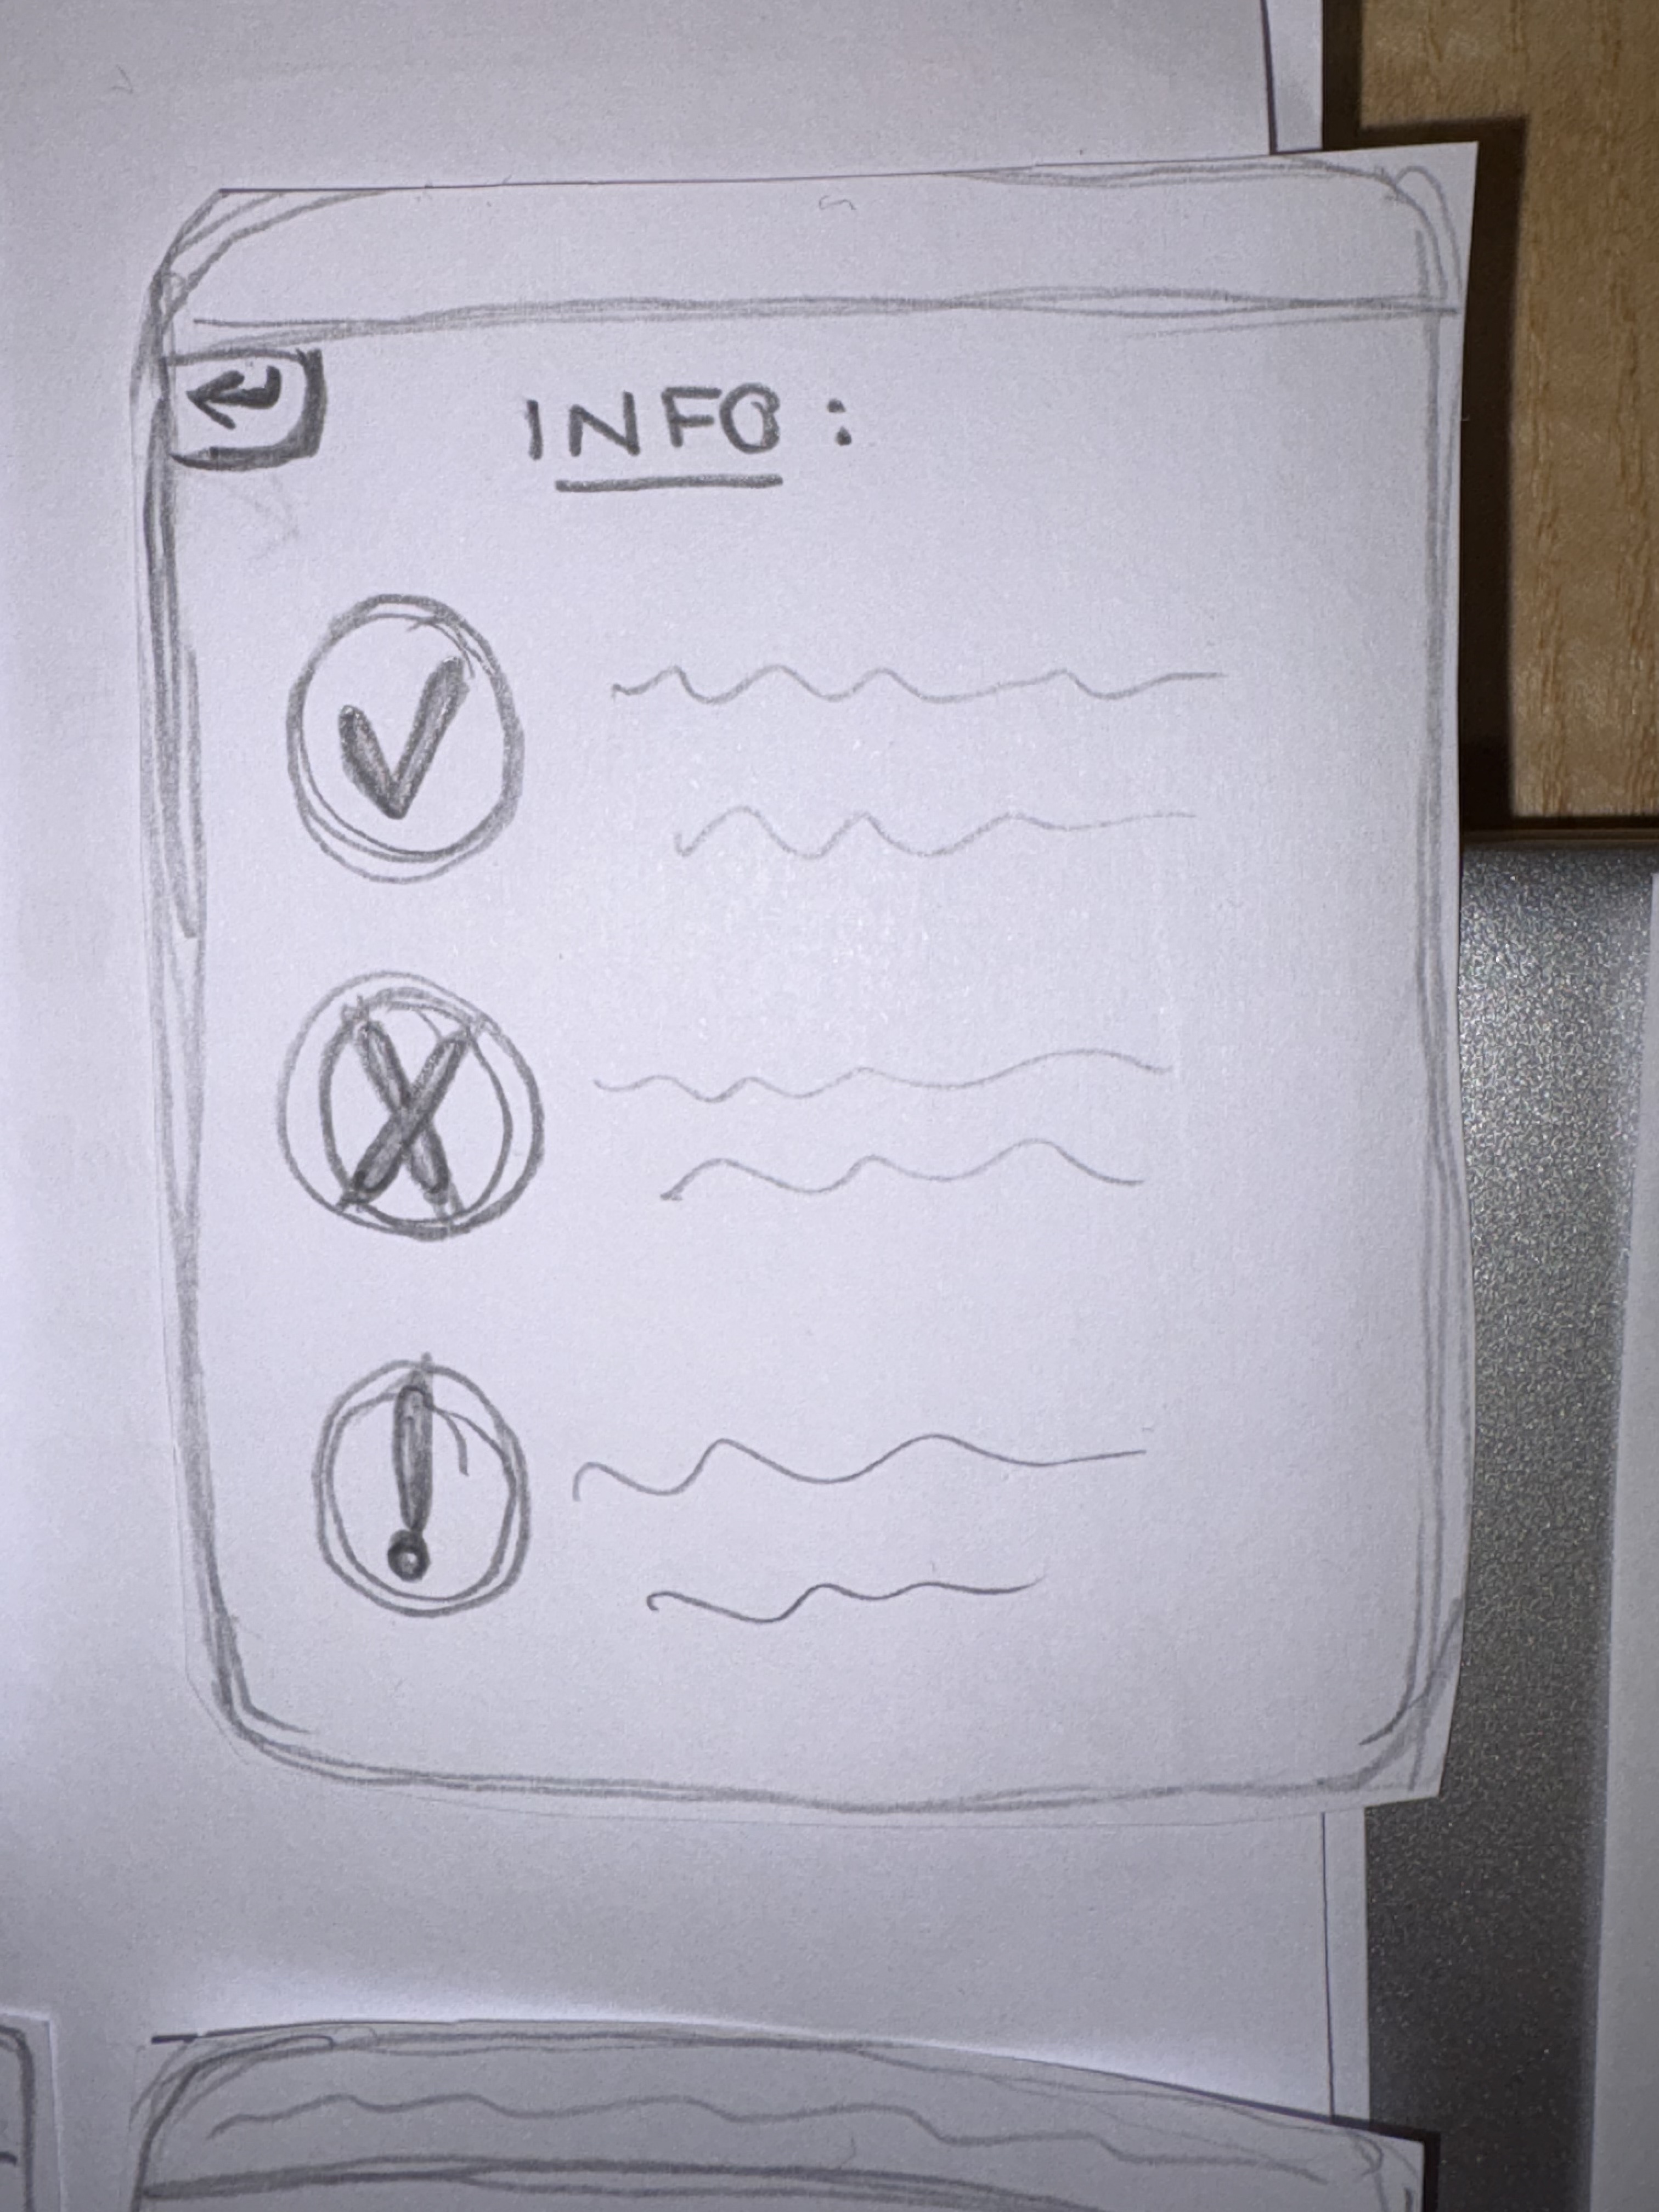 INFO :